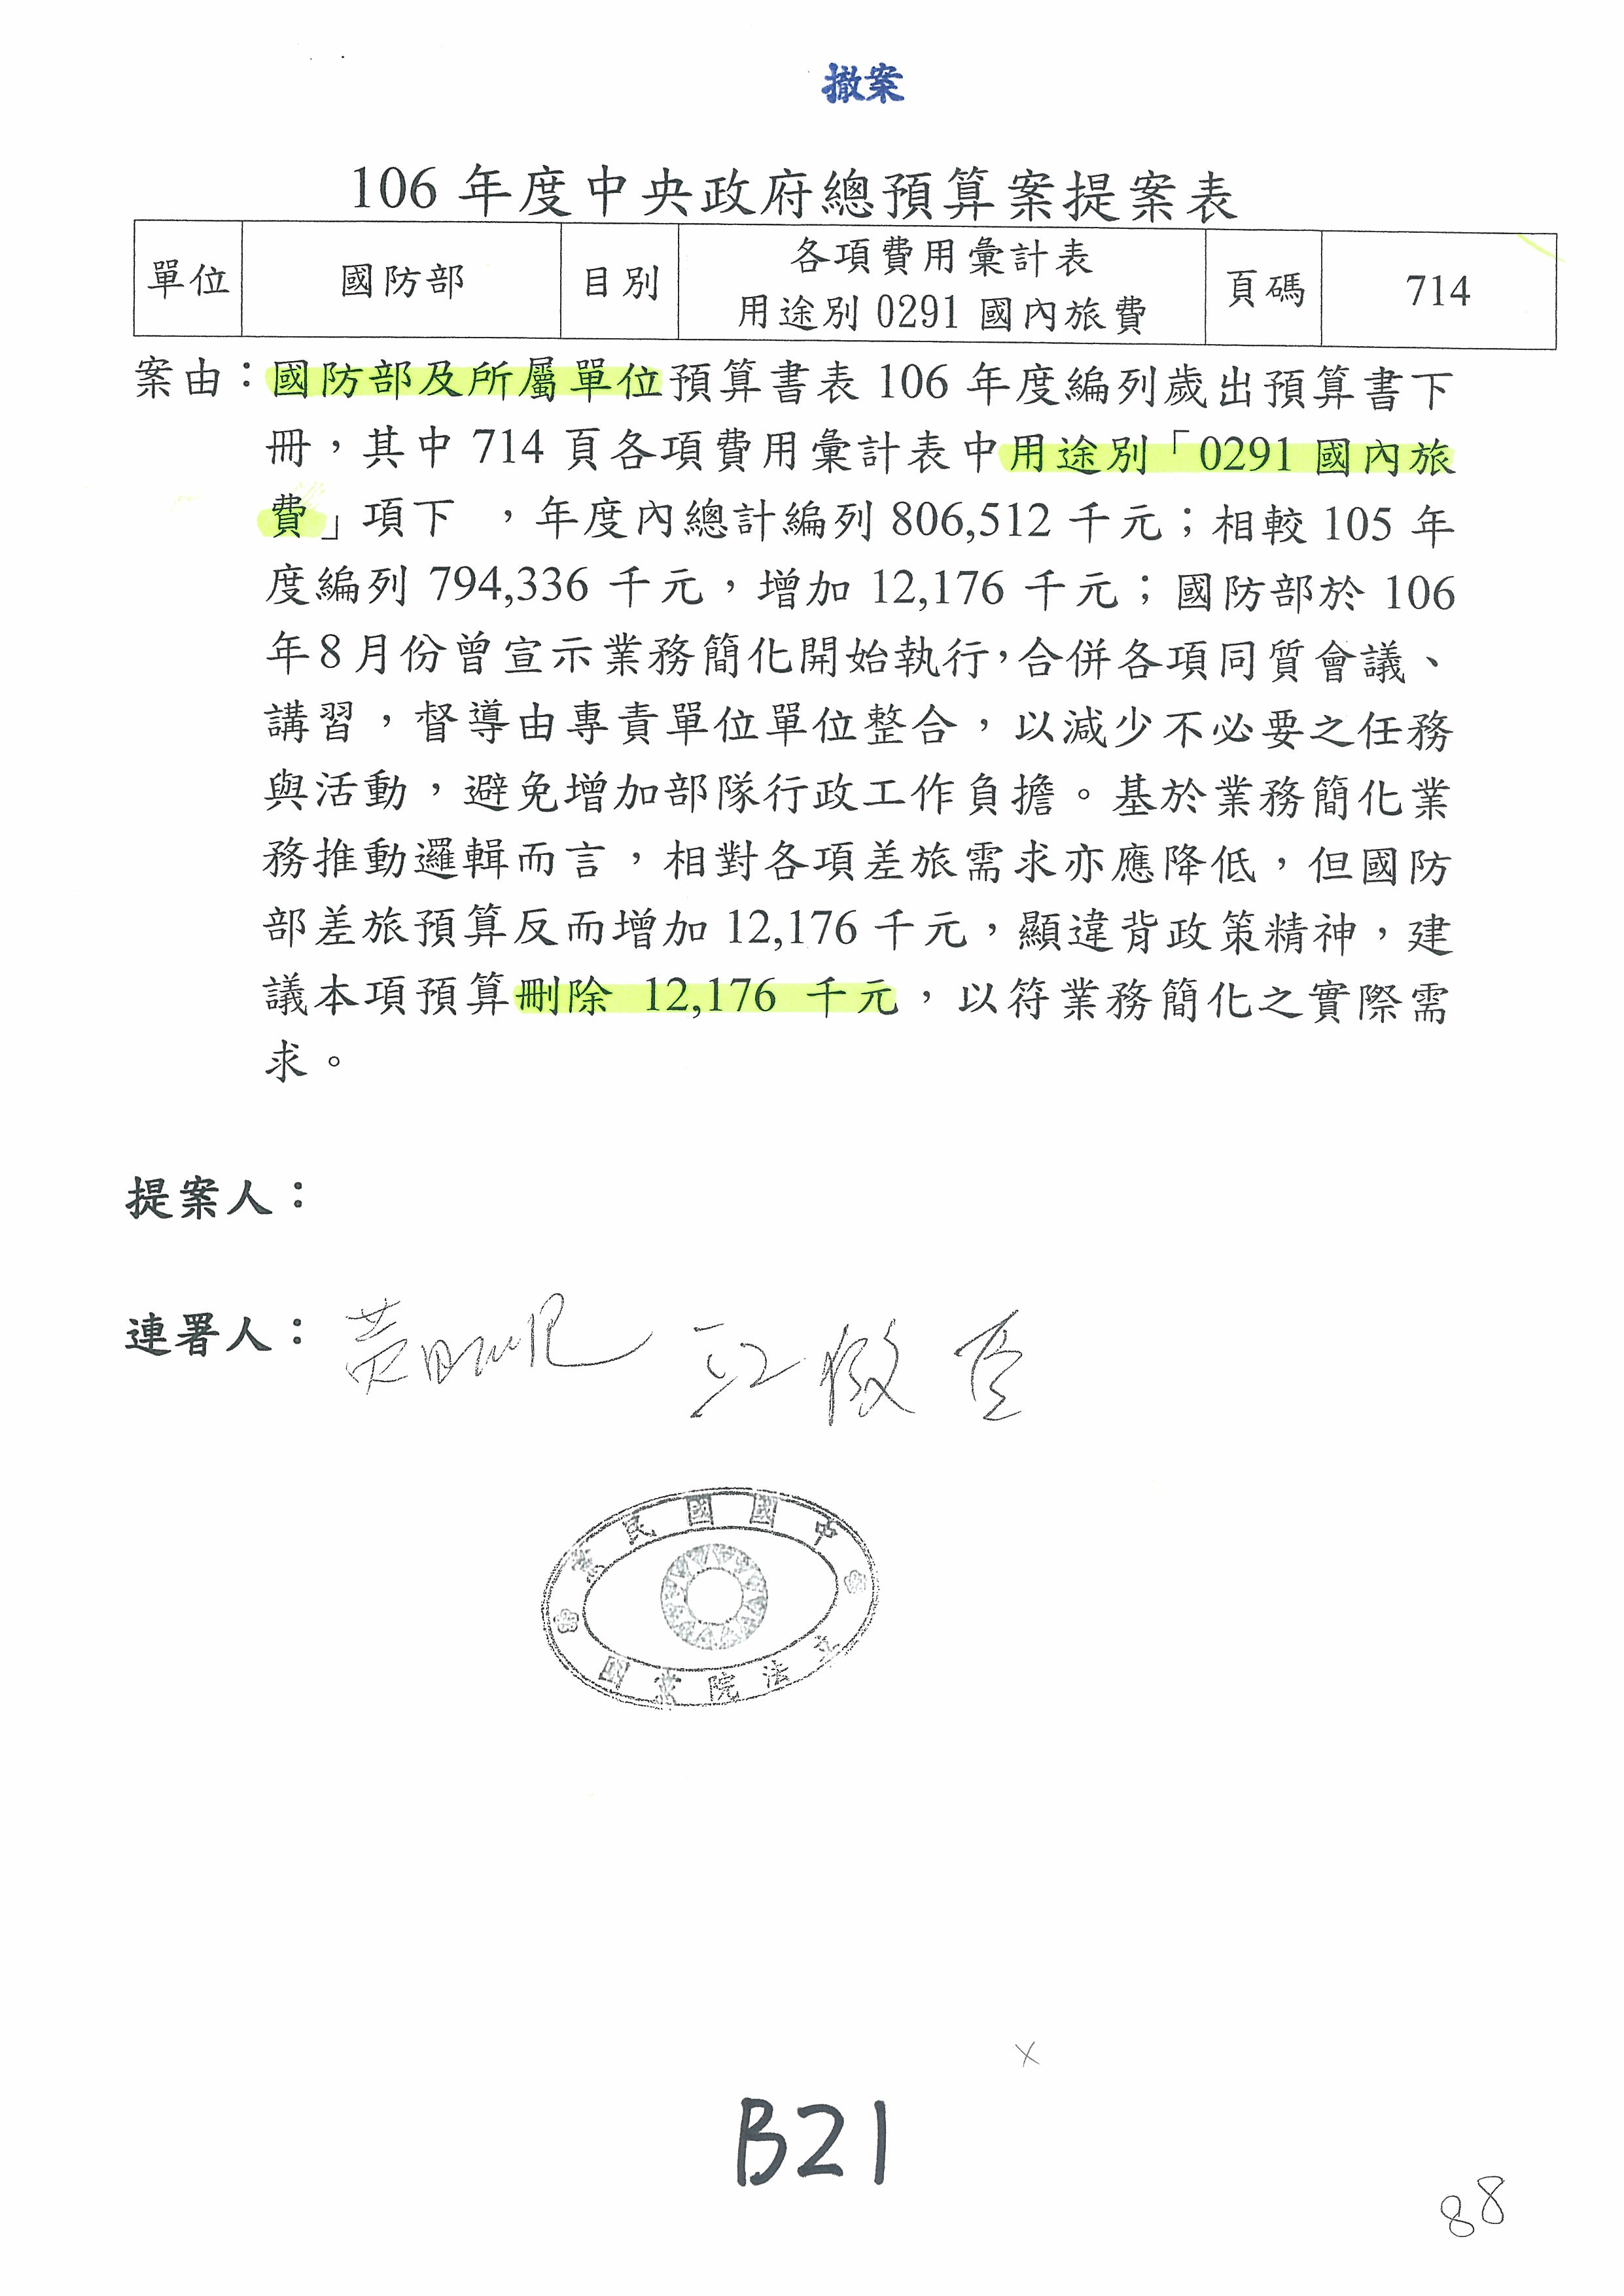 撤案
106 年度中央政府總預算案提案表
單位 國防部 目別 各項費用彙計表 用途別 0291 國內旅費 頁碼 714
案由：國防部及所屬單位預算書表 106 年度編列歲出預算書下
冊，其中 714 頁各項費用彙計表中用途別「0291 國內旅
費」項下 ，年度內總計編列 806,512 千元；相較 105 年
度編列 794,336 千元，增加 12,176 千元；國防部於 106
年 8 月份曾宣示業務簡化開始執行，合併各項同質會議、
講習，督導由專責單位單位整合，以減少不必要之任務
與活動，避免增加部隊行政工作負擔。基於業務簡化業
務推動邏輯而言，相對各項差旅需求亦應降低，但國防
部差旅預算反而增加 12,176 千元，顯違背政策精神，建
議本項預算刪除 12,176 千元，以符業務簡化之實際需
求。
提案人：
連署人：
中國國民黨
立法院黨團
B21
88